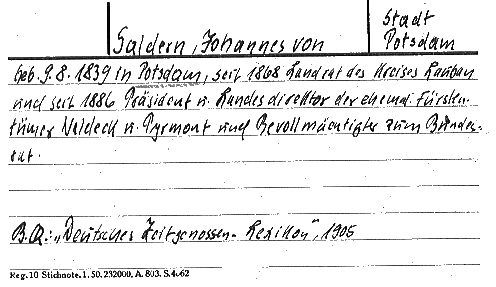 Saldern, Johannes von
Stadt
Potsdam
Geb. 9.8. 1839 in Potsdam, seit 1868 Landrat des Kreises Lauban
und seit 1886 Präsident u. Landesdirektor der ehem. Fürsten-
tümer Waldeck u. Pyrmont und Bevollmächtigter zum Bundes-
rat.
B.Q.: „Deutsches Zeitgenossen-Lexikon", 1905
Reg. 10 Stichnote. 1. 50. 232000. A. 803. S.4.62